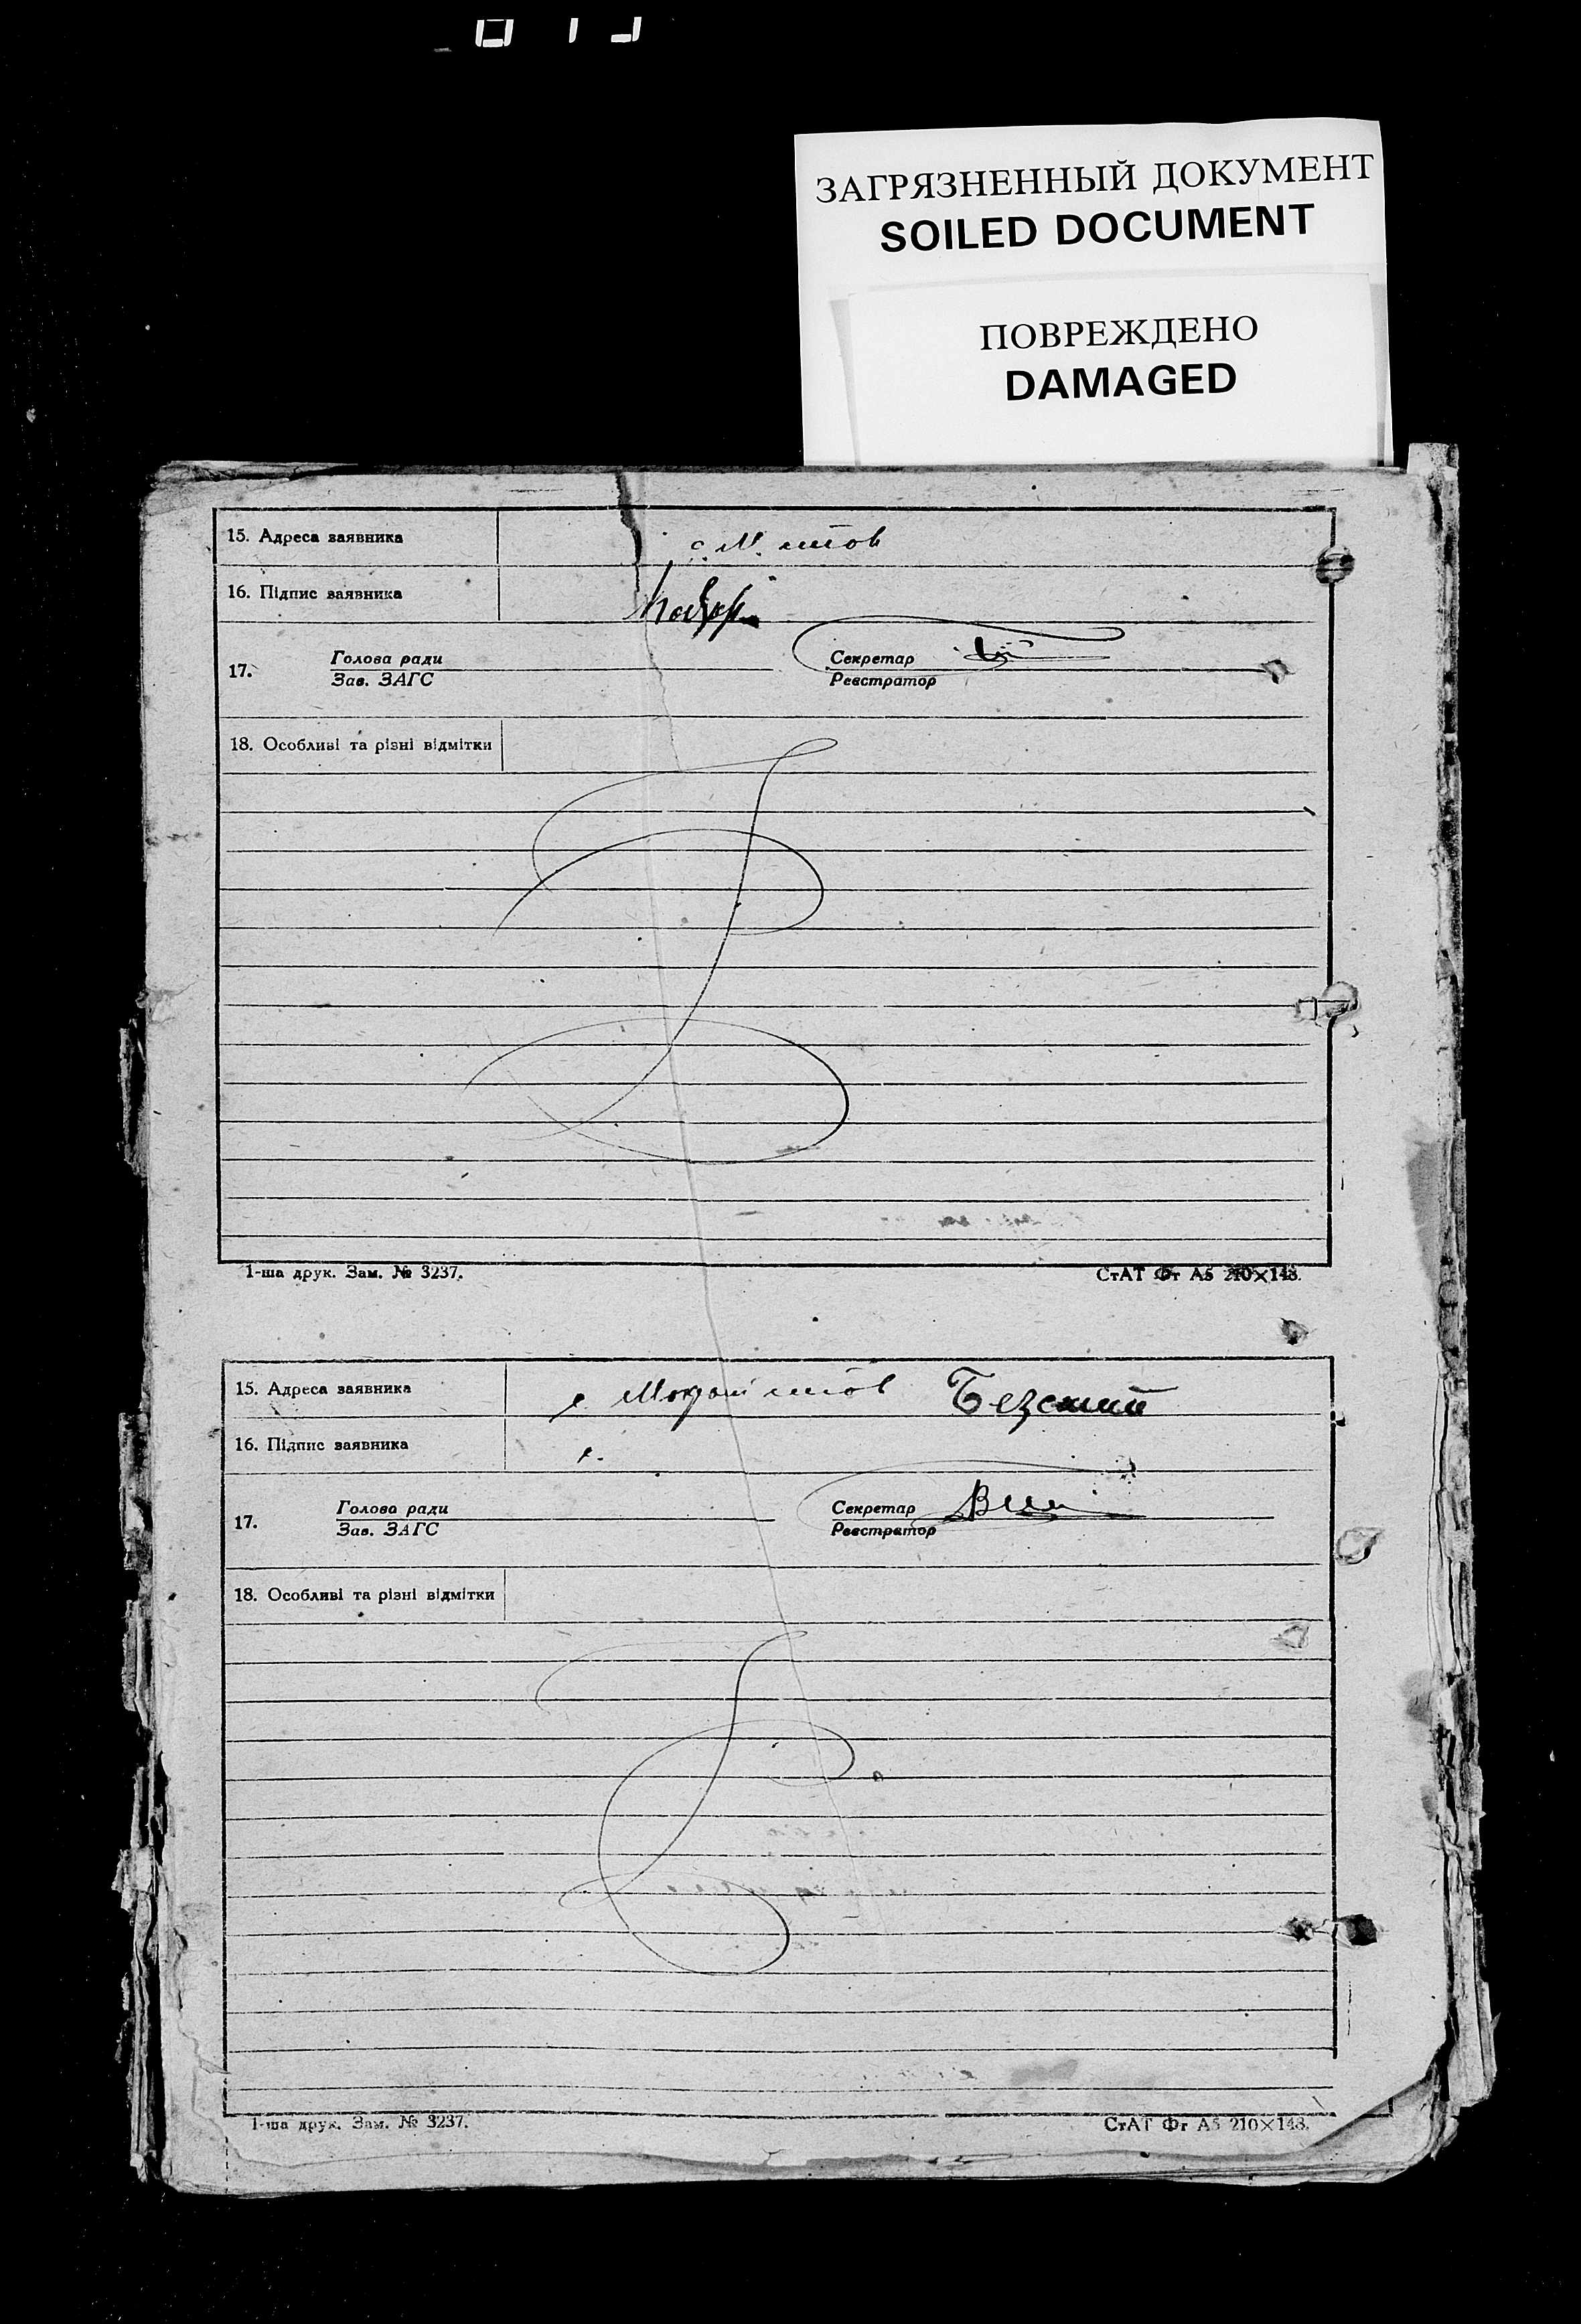 ЗАГРЯЗНЕННЫЙ ДОКУМЕНТ
SOILED DOCUMENT
ПОВРЕЖДЕНО
DAMAGED
15. Адреса заявника
16. Підпис заявника
17. Голова ради Секретар
Зав. ЗАГС Реєстратор
18. Особливі та різні відмітки
1-ша друк. Зам. № 3237. СтАТ Фт А5 210×148.
15. Адреса заявника с.
16. Підпис заявника
17. Голова ради Секретар
Зав. ЗАГС Реєстратор
18. Особливі та різні відмітки
1-ша друк. Зам. № 3237. СтАТ Фт А5 210×148.